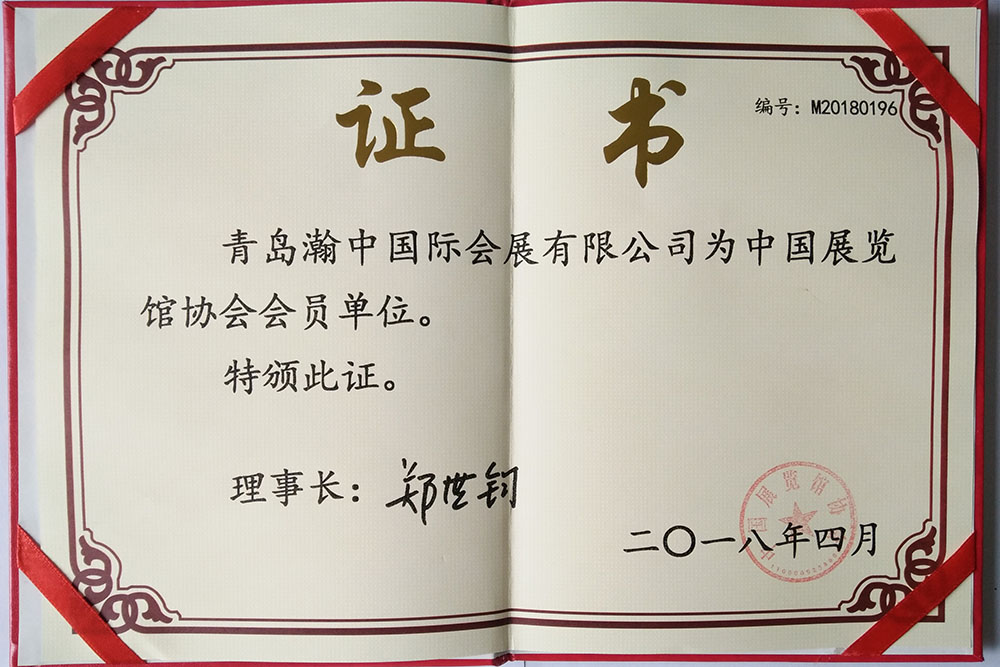 证 书
编号：M20180196
青岛瀚中国际会展有限公司为中国展览
馆协会会员单位。
特颁此证。
理事长：郑世钧
二〇一八年四月
中国展览馆协会